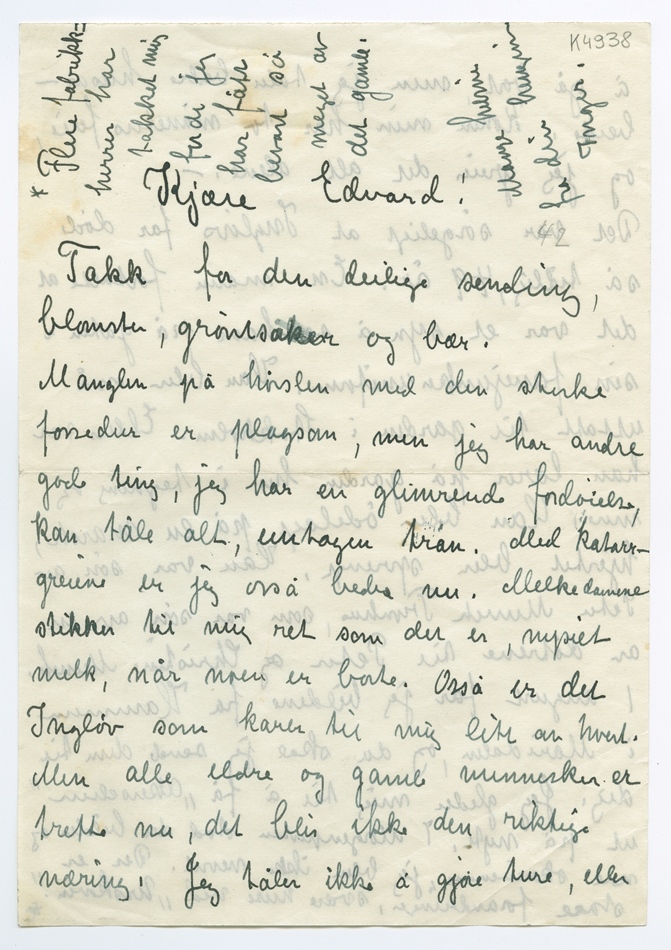 K4938
* Flere fabrikk-
herrer har
takket mig
fordi jeg
har fått
bevart så
meget av
det gamle.
hilsen
fra din
Inger.
Kjære Edvard!
42
Takk for den deilige sending,
blomster, grøntsaker og bær.
Manglen på hørslen med den sterke
forsedur er plagsom, men jeg har andre
gode ting, jeg har en glimrende fordøielse,
kan tåle alt, untagen trån. Med katarr-
greiene er jeg også bedre nu. Melkedamene
stikker til mig ret som det er, nysiet
melk, når noen er borte. Også er det
Ingløv som karer til mig litt av hvert.
Men alle eldre og gamle mennesker er
trette nu, det blir ikke den riktige
næring! Jeg tåler ikke å gjøre ture, eller